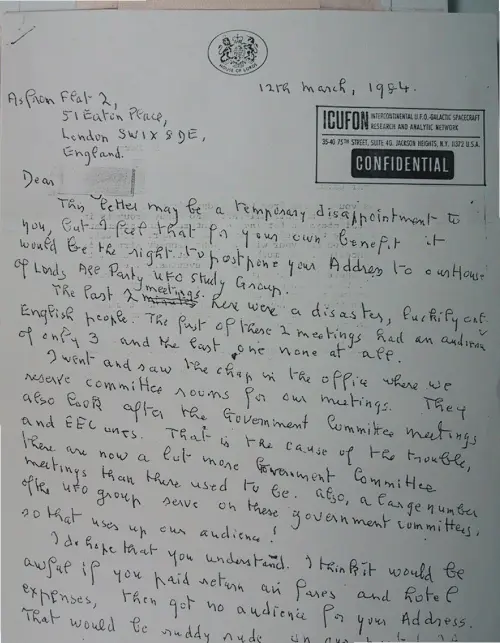 HOUSE OF LORDS
12th March, 1984.
As from Flat 2,
51 Eaton Place,
London SW1X 8DE,
England.
ICUFON INTERCONTINENTAL U.F.O. GALACTIC SPACECRAFT
RESEARCH AND ANALYTIC NETWORK
35-40 75TH STREET, SUITE 4G, JACKSON HEIGHTS, N.Y. 11372 U.S.A.
CONFIDENTIAL
Dear
This letter may be a temporary disappointment to
you, but I feel that for your own benefit it
would be the right to postpone your Address to our House
of Lords All Party UFO Study Group.
The last 2 meetings here were a disaster, luckily only
English people. The first of these 2 meetings had an audience
of only 3 and the last one none at all.
I went and saw the chap in the office where we
reserve committee rooms for our meetings. They
also look after the Government Committee meetings
and EEC ones. That is the cause of the trouble,
there are now a lot more Government Committee
meetings than there used to be. Also, a large number
of the UFO group serve on these government committees,
so that uses up our audience!
I do hope that you understand. I think it would be
awful if you paid return air fares and hotel
expenses, then got no audience for your Address.
That would be ruddy rude